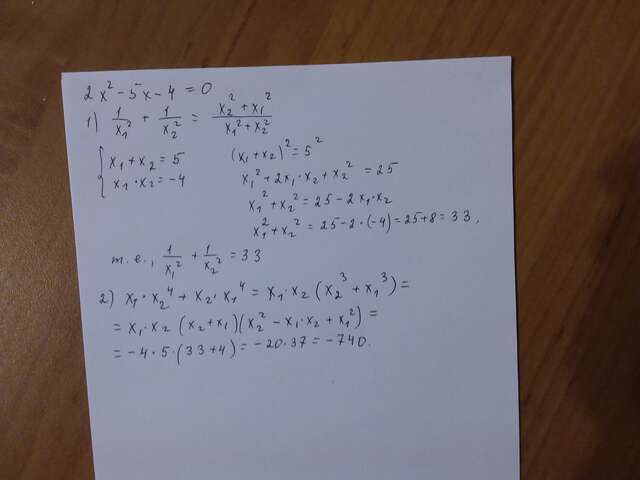 2x² - 5x - 4 = 0
1) 1/x₁² + 1/x₂² = (x₂² + x₁²)/(x₁² + x₂²)
{ x₁ + x₂ = 5
x₁ · x₂ = -4
(x₁ + x₂)² = 5²
x₁² + 2x₁ · x₂ + x₂² = 25
x₁² + x₂² = 25 - 2x₁x₂
x₁² + x₂² = 25 - 2 · (-4) = 25 + 8 = 33,
т.е., 1/x₁² + 1/x₂² = 33
2) x₁ · x₂⁴ + x₂ · x₁⁴ = x₁ · x₂ (x₂³ + x₁³) =
= x₁ · x₂ (x₂ + x₁)(x₂² - x₁ · x₂ + x₁²) =
= -4 · 5 · (33 + 4) = -20 · 37 = -740.